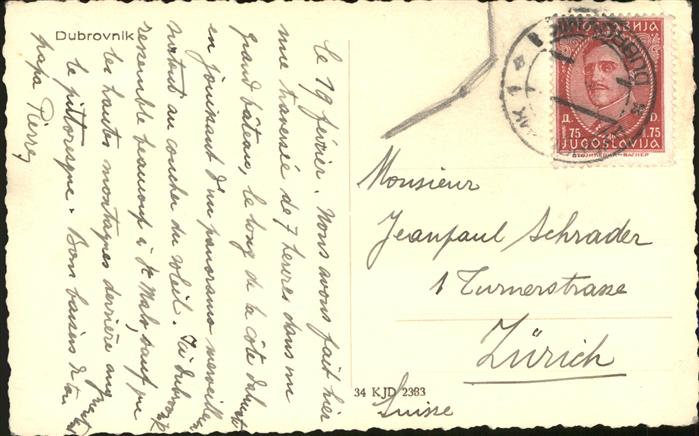 Dubrovnik
Le 19 février. Nous avons fait hier
une traversée de 7 heures dans un
grand bâteau, le long de la côte
en jouissant d'un panorama merveilleux
surtout au coucher du soleil. Ici Dubrovnik
ressemble beaucoup à St Malo, sauf que
les hautes montagnes derrière
le pittoresque. Bons baisers de ton
papa Pierre
ЈУГОСЛАВИЈА
Д.
D.
1.75
1.75
JUGOSLAVIJA
Monsieur
Jeanpaul Schrader
1 Turnerstrasse
Zürich
Suisse
34 KJD 2383